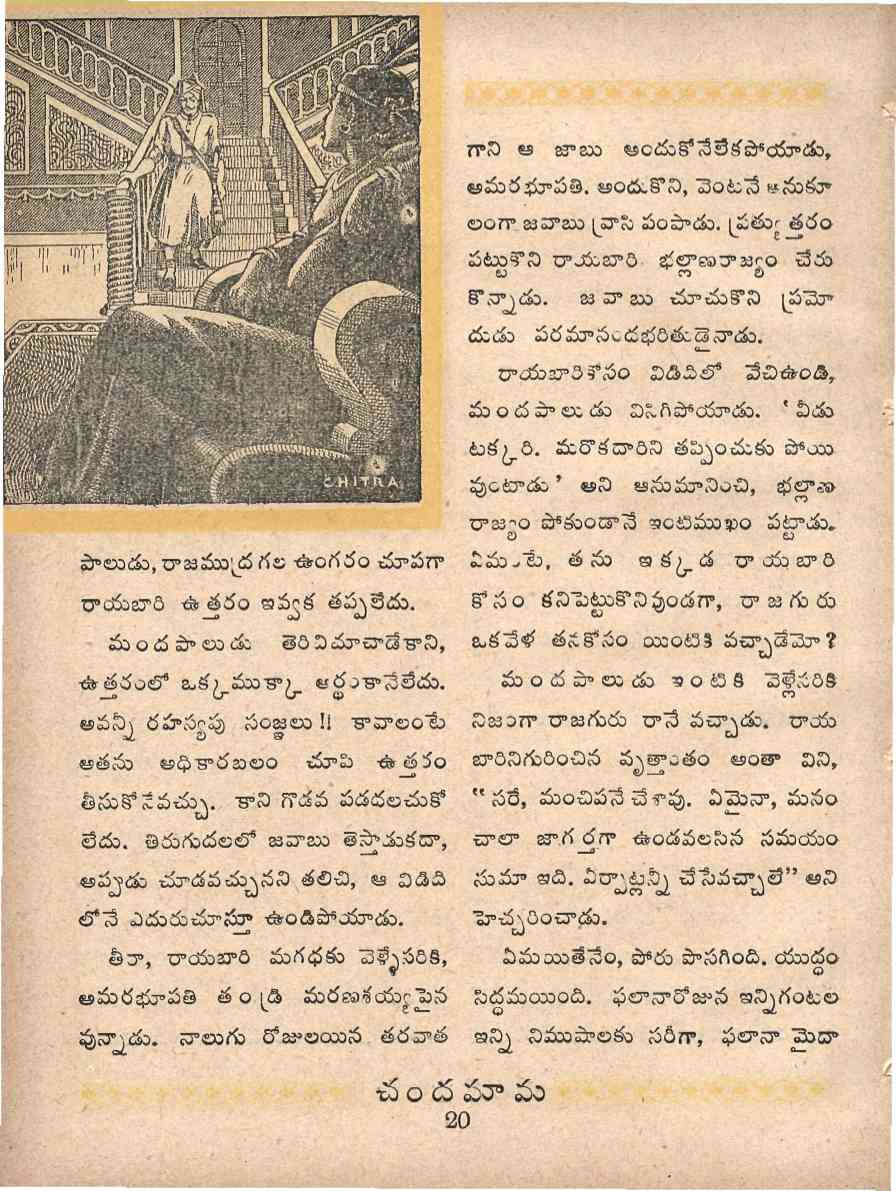 CHITRA
పాలుడు, రాజముద్రగల ఉంగరం చూపగా
రాయబారి ఉత్తరం ఇవ్వక తప్పలేదు.
మందపాలుడు తెరిచిచూచాడేకాని,
ఉత్తరంలో ఒక్కముక్కా అర్థంకానేలేదు.
అవన్నీ రహస్యపు సంజ్ఞలు !! కావాలంటే
అతను అధికారబలం చూపి ఉత్తరం
తీసుకోనేవచ్చు. కాని గొడవ పడదలచుకో
లేదు. తిరుగుదలలో జవాబు తెస్తాడుకదా,
అప్పుడు చూడవచ్చునని తలిచి, ఆ విడిది
లోనే ఎదురుచూస్తూ ఉండిపోయాడు.
తీరా, రాయబారి మగధకు వెళ్ళేసరికి,
అమరభూపతి తండ్రి మరణశయ్యపైన
వున్నాడు. నాలుగు రోజులయిన తరవాత
గాని ఆ జాబు అందుకోనేలేకపోయాడు,
అమరభూపతి. అందుకొని, వెంటనే అనుకూ
లంగా జవాబు వ్రాసి పంపాడు. ప్రత్యుత్తరం
పట్టుకొని రాయబారి భల్లాణరాజ్యం చేరు
కొన్నాడు. జవాబు చూచుకొని ప్రమో
దుడు పరమానందభరితుడైనాడు.
రాయబారికోసం విడిదిలో వేచిఉండి,
మందపాలుడు విసిగిపోయాడు. ‘వీడు
టక్కరి. మరొకదారిని తప్పించుకు పోయి
వుంటాడు’ అని అనుమానించి, భల్లాణ
రాజ్యం పోకుండానే ఇంటిముఖం పట్టాడు.
ఏమంటే, తను ఇక్కడ రాయబారి
కోసం కనిపెట్టుకొనివుండగా, రాజగురు
ఒకవేళ తనకోసం యింటికి వచ్చాడేమో?
మందపాలుడు ఇంటికి వెళ్లేసరికి
నిజంగా రాజగురు రానే వచ్చాడు. రాయ
బారినిగురించిన వృత్తాంతం అంతా విని,
“సరే, మంచిపనే చేశావు. ఏమైనా, మనం
చాలా జాగర్తగా ఉండవలసిన సమయం
సుమా ఇది. ఏర్పాట్లన్నీ చేసేవచ్చాలే” అని
హెచ్చరించాడు.
ఏమయితేనేం, పోరు పొసగింది. యుద్ధం
సిద్ధమయింది. ఫలానారోజున ఇన్నిగంటల
ఇన్ని నిముషాలకు సరీగా, ఫలానా మైదా
చందమామ
20